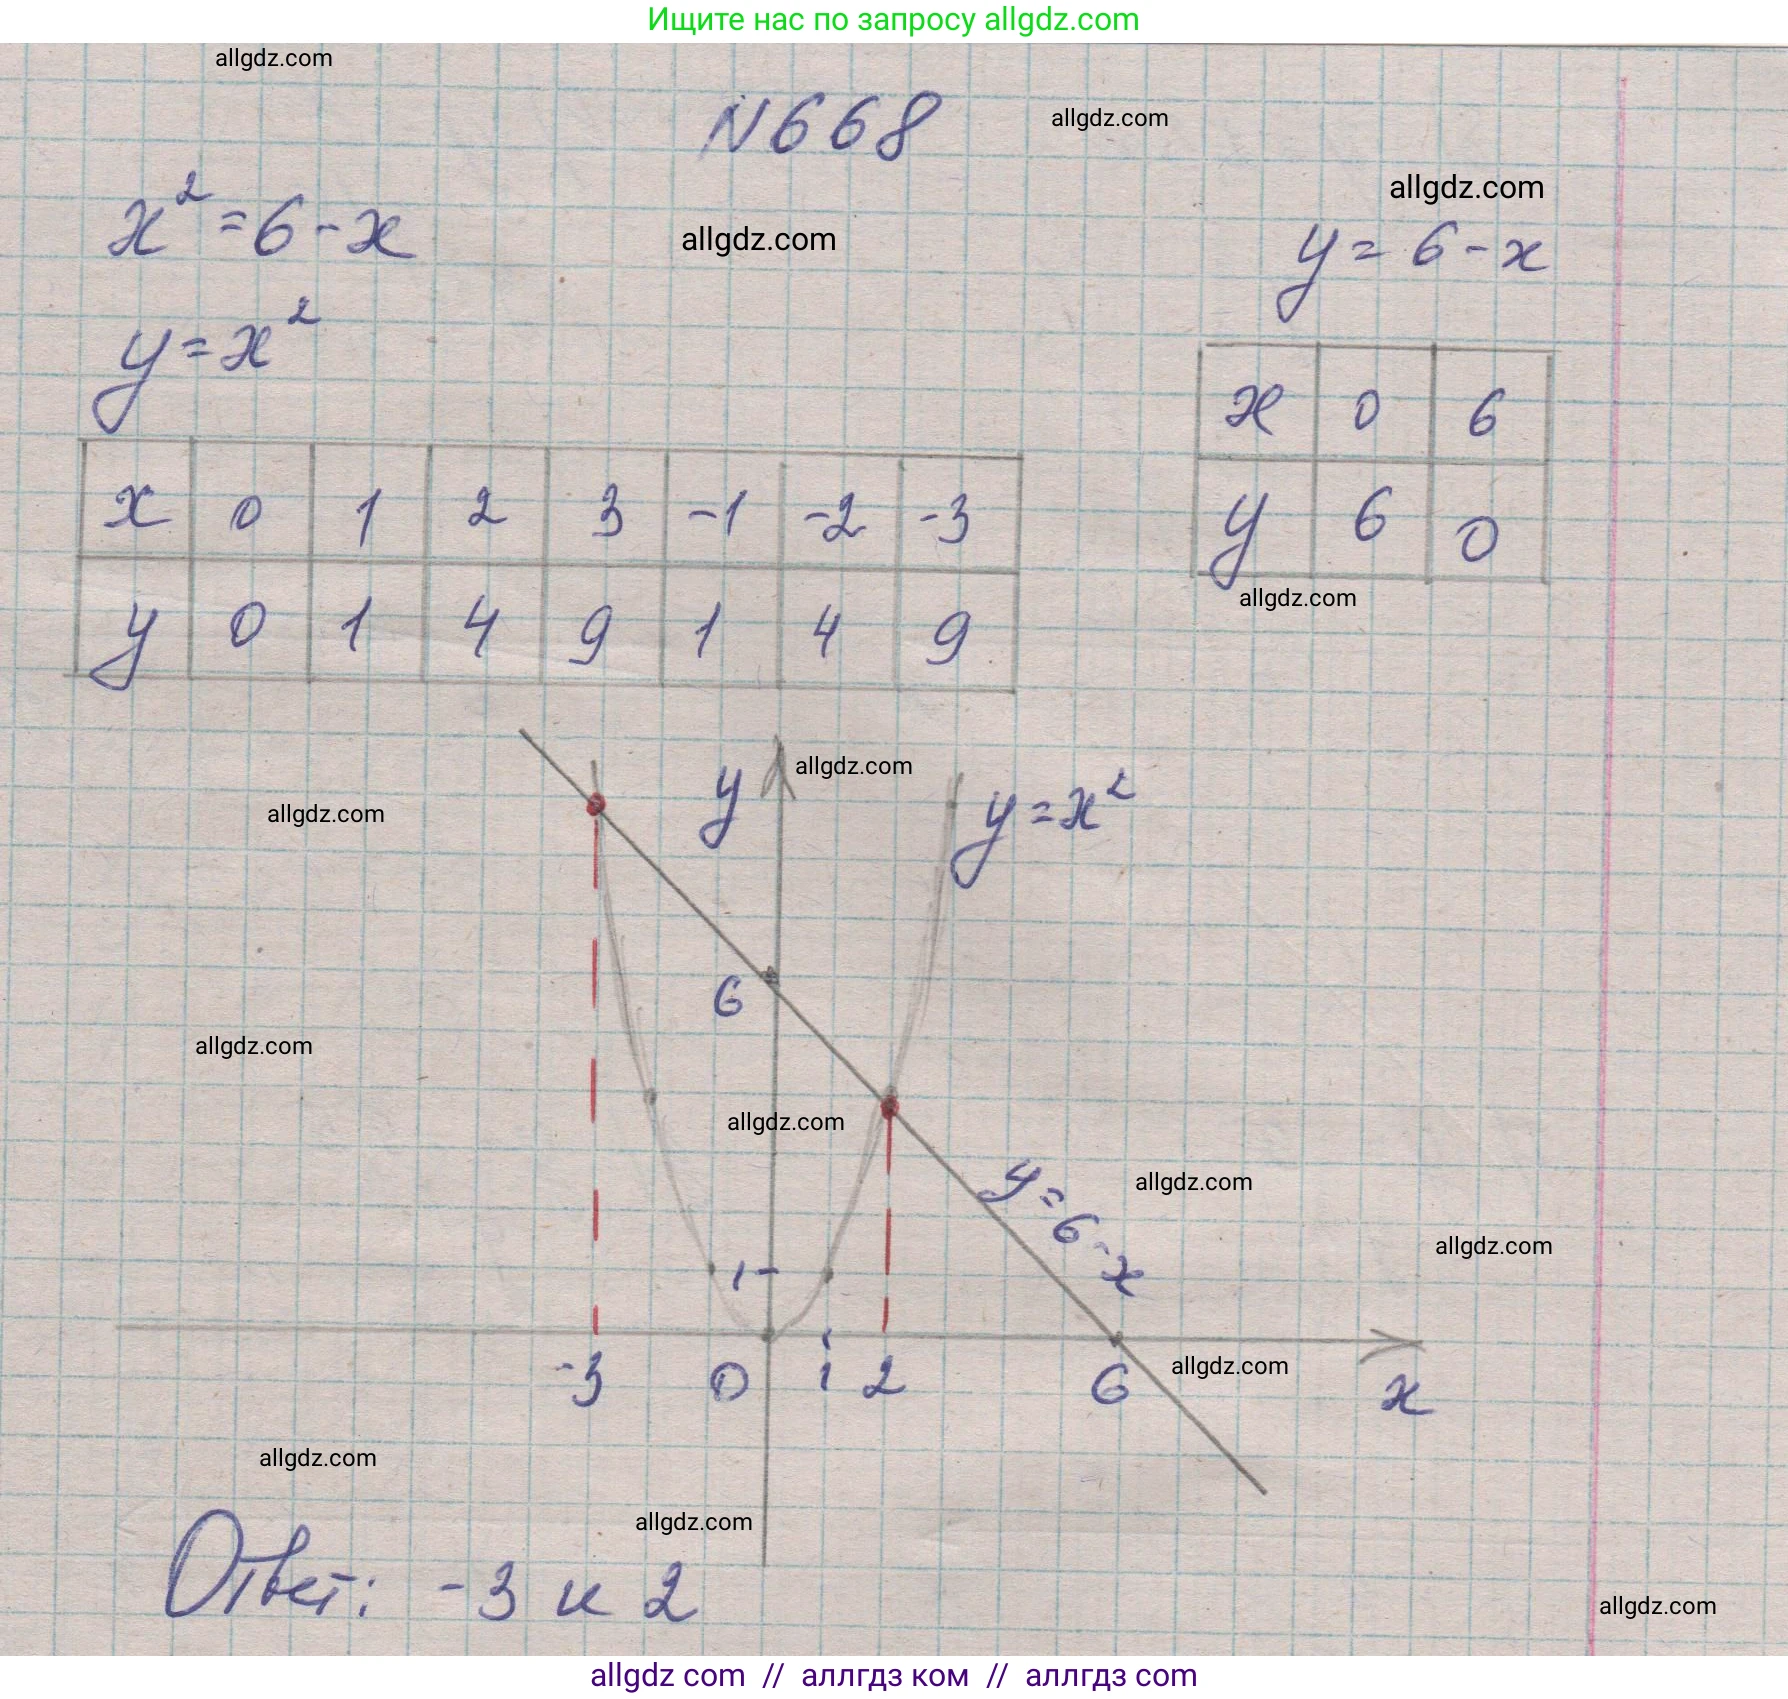 Ищите нас по запросу allgdz.com
allgdz.com
N668
allgdz.com
allgdz.com
x² = 6 - x
allgdz.com
y = 6 - x
y = x²
x 0 6
y 6 0
x 0 1 2 3 -1 -2 -3
y 0 1 4 9 1 4 9
allgdz.com
allgdz.com
y
y = x²
allgdz.com
6
allgdz.com
allgdz.com
y = 6 - x
allgdz.com
allgdz.com
1
-3 0 1 2 6 x
allgdz.com
allgdz.com
allgdz.com
Ответ: -3 и 2
allgdz.com
allgdz com // аллгдз ком // аллгдз com